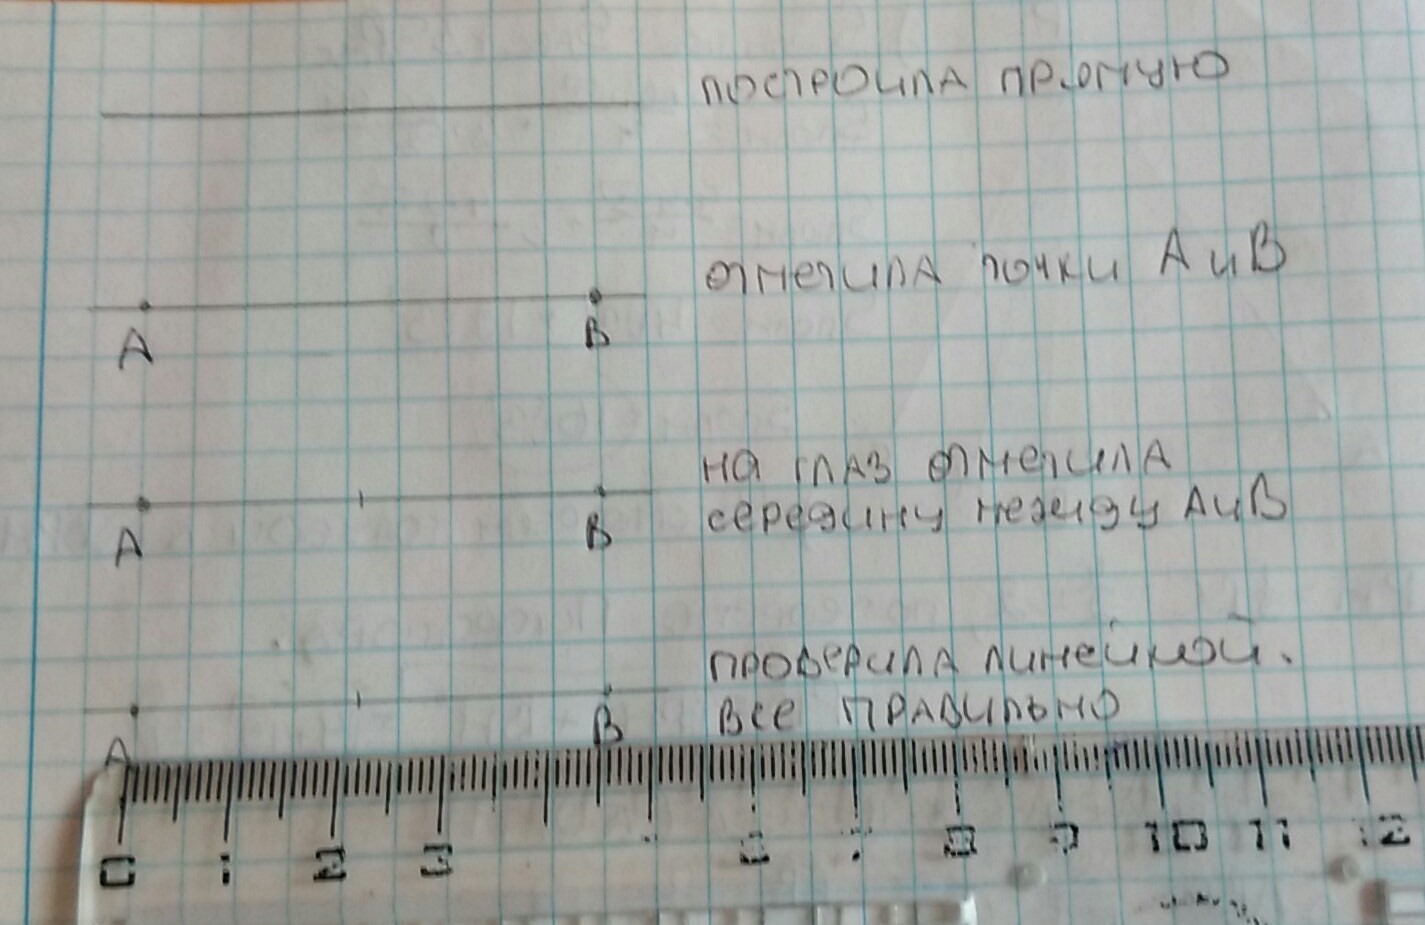 построила прямую
отметила точки А и В
А
В
на глаз отметила
середину между А и В
А
В
проверила линейкой.
все правильно
А
В
0 1 2 3 8 9 10 11 12